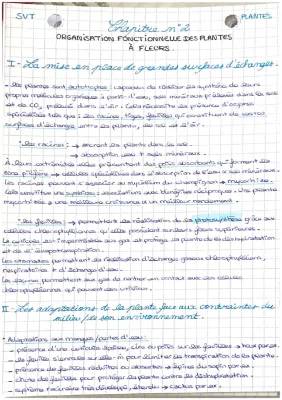 SVT
PLANTES
Chapitre n°2
ORGANISATION FONCTIONNELLE DES PLANTES
À FLEURS.
I - La mise en place de grandes surfaces d'échanges.
- Les plantes sont autotrophes : capables de réaliser la synthèse de leurs
propre molécules organiques à partir d'eau, sels minéraux présents dans le sol
et de CO2 présent dans l'air. Cela nécessite la présence d'organes
spécialisés tels que : les racines, tiges, feuilles qui constituent de vastes
surfaces d'échange entre les plantes, le sol et l'air.
- Les racines : → ancrent les plante dans le sol.
→ absorption eau + sels minéraux.
À leurs extrémités elles présentent des poils absorbants qui forment la
zone pilifère → cellules spécialisées dans l'absorption de l'eau et sels minéraux.
Les racines peuvent s'associer au mycélium du champignon → mycorhize :
Cela constitue une symbiose : associations avec bénéfices réciproques. Une plante
mycorhizée a une meilleure croissance et un meilleur rendement.
- Les feuilles : → permettent la réalisation de la photosynthèse grâce aux
cellules chlorophylliennes qu'elles possèdent sur leurs faces supérieures.
La cuticule est imperméable aux gaz et protège la plante de la déshydratation
et de l'évapotranspiration.
Les stomates permettent la réalisation d'échange gazeux chlorophylliens,
respiratoires + d'échange d'eau.
Les lacunes permettent aux gaz de rentrer en contact avec les cellules
chlorophylliennes qui peuvent les utiliser.
II - Les adaptations de la plante face aux contraintes du
milieu / de son environnement.
• Adaptations aux manques / pertes d'eau :
- présence d'une cuticule épaisse, cire ou poils sur les feuilles →
- les feuilles s'enroule sur elle-m pour limiter la transpiration de la plante.
- présence de feuilles réduites ou absentes →
- chute des feuilles pour protéger la plante contre la déshydratation.
- système racinaire très développé, étendu → cactus par ex.